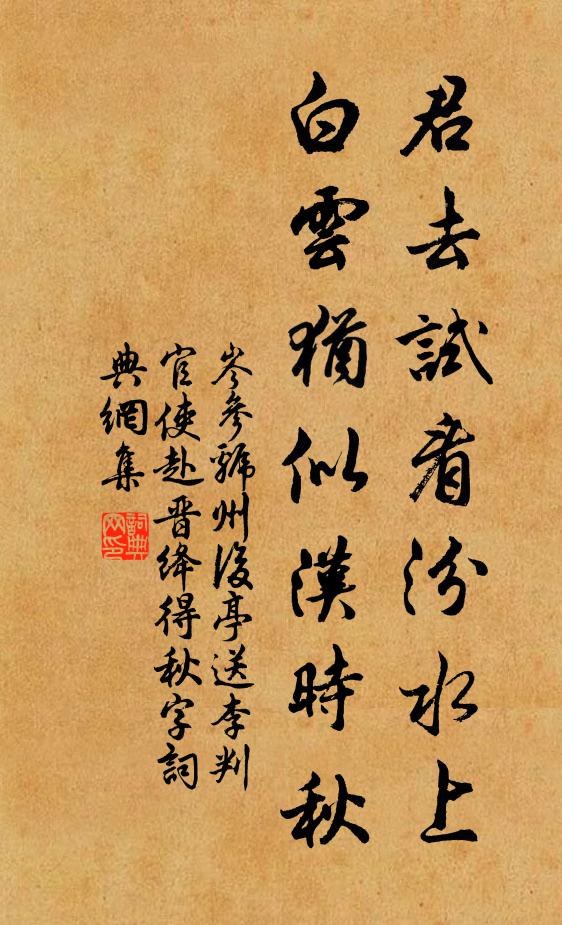 君去試看汾水上
白雲猶似漢時秋
岑參虢州後亭送李判
官使赴晋絳得秋字詞
典網集
詞典
网印